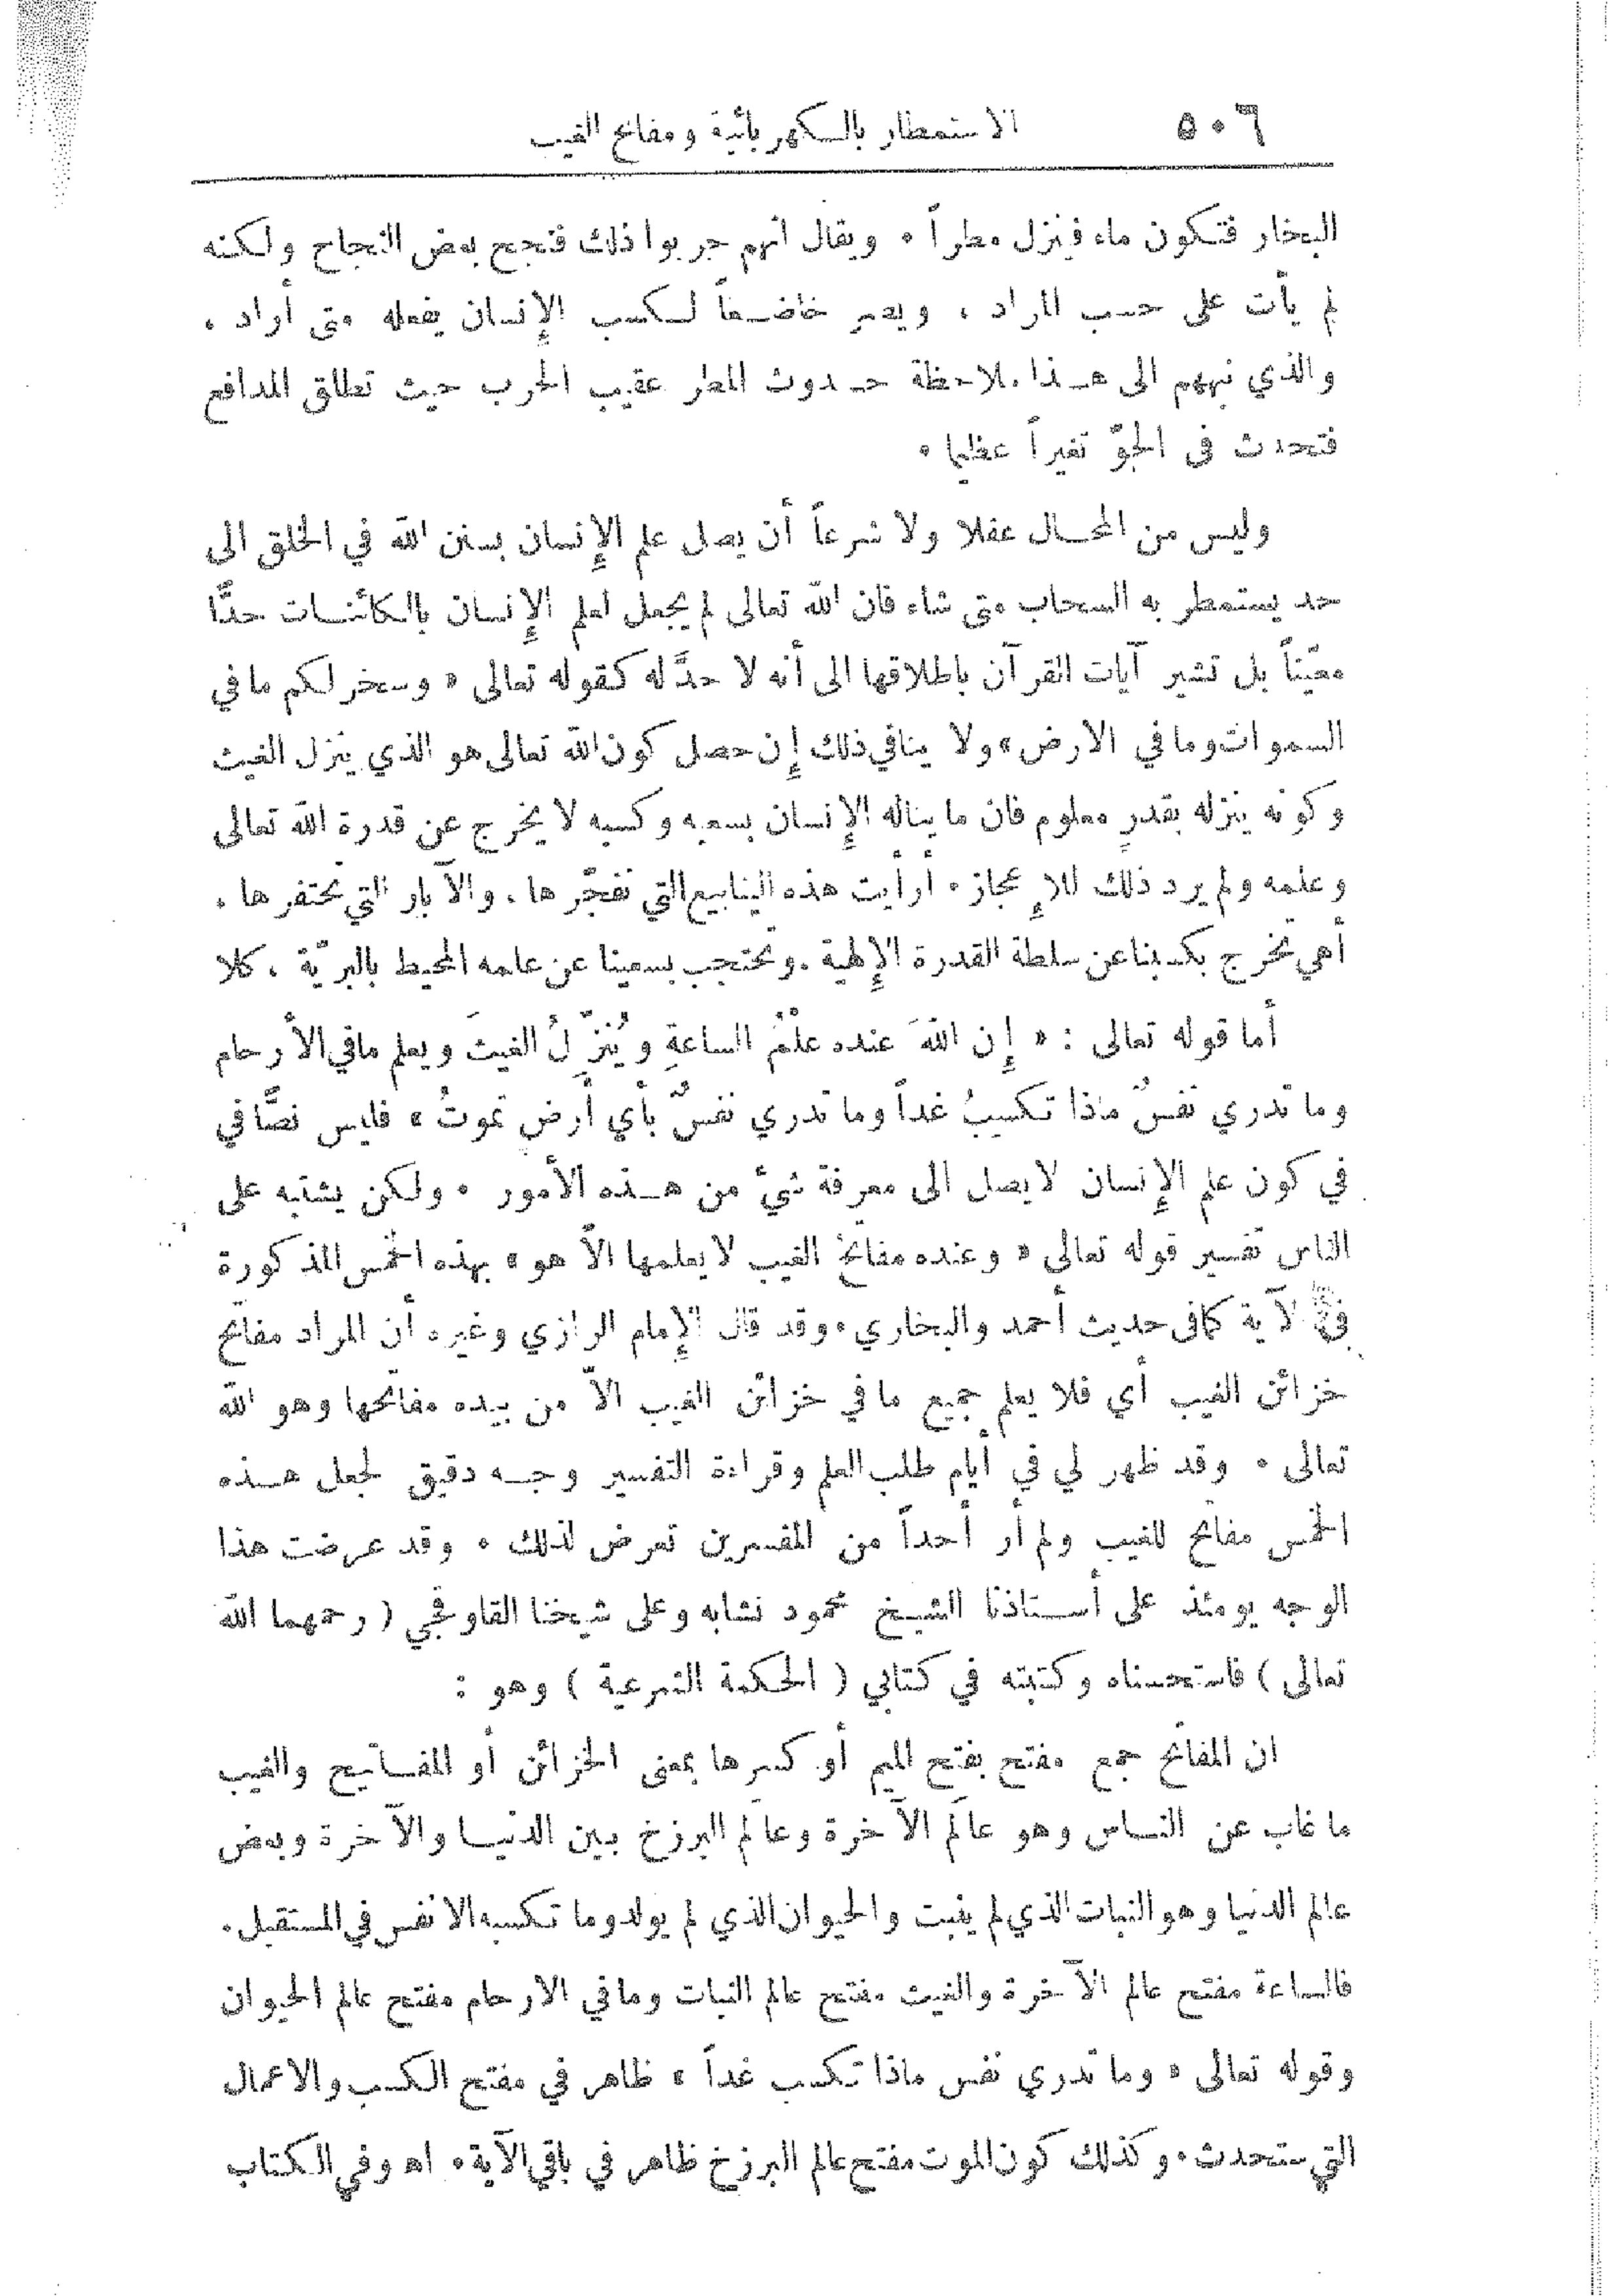 ٥٠٦ الاستمطار بالكهربائية ومفاتح الغيب
البخار فتكون ماء فينزل مطراً . ويقال انهم جربوا ذلك فنجح بعض النجاح ولكنه
لم يأت على حسب المراد ، ويصر خاضعاً لكسب الإنسان يفعله متى أراد ،
والذي نبههم الى هذا ملاحظة حدوث المطر عقيب الحرب حيث تطلق المدافع
فتحدث في الجوّ تغيراً عظيما .
وليس من المحال عقلا ولا شرعاً أن يصل علم الإنسان بسنن الله في الخلق الى
حد يستمطر به السحاب متى شاء فان الله تعالى لم يجعل لعلم الإنسان بالكائنات حدًّا
معيّناً بل تشير آيات القرآن باطلاقها الى أنه لا حدَّ له كقوله تعالى « وسخر لكم ما في
السموات وما في الارض » ولا ينافي ذلك إن حصل كون الله تعالى هو الذي ينزل الغيث
وكونه ينزله بقدرٍ معلوم فان ما يناله الإنسان بسعيه وكسبه لا يخرج عن قدرة الله تعالى
وعلمه ولم يرد ذلك للإعجاز . أرأيت هذه الينابيع التي نفجّرها ، والآبار التي نحتفرها .
أهي تخرج بكسبنا عن سلطة القدرة الإلهية . وتحتجب بسعينا عن علمه المحيط بالبريّة ، كلا
أما قوله تعالى : « إن اللهَ عنده علْمُ الساعةِ ويُنَزّلُ الغيثَ ويعلم ما في الأرحام
وما تدري نفسٌ ماذا تكسبُ غداً وما تدري نفسٌ بأي أرضٍ تموتُ » فليس نصًّا في
في كون علم الإنسان لا يصل الى معرفة شيء من هذه الأمور . ولكن يشتبه على
الناس تفسير قوله تعالى « وعنده مفاتحُ الغيب لا يعلمها الاّ هو » بهذه الخمس المذكورة
في الآية كما في حديث أحمد والبخاري . وقد قال الإمام الرازي وغيره أن المراد مفاتح
خزائن الغيب أي فلا يعلم جميع ما في خزائن الغيب الاّ من بيده مفاتحها وهو الله
تعالى . وقد ظهر لي في أيام طلب العلم وقراءة التفسير وجه دقيق لجعل هذه
الخمس مفاتح للغيب ولم أر أحداً من المفسرين تعرض لذلك . وقد عرضت هذا
الوجه يومئذ على أستاذنا الشيخ محمود نشابه وعلى شيخنا القاوقجي ( رحمهما الله
تعالى ) فاستحسناه وكتبته في كتابي ( الحكمة الشرعية ) وهو :
ان المفاتح جمع مفتح بفتح الميم أو كسرها بمعنى الخزائن أو المفاتيح والغيب
ما غاب عن الناس وهو عالَم الآخرة وعالم البرزخ بين الدنيا والآخرة وبعض
عالم الدنيا وهو النبات الذي لم ينبت والحيوان الذي لم يولد وما تكسبه الانفس في المستقبل .
فالساعة مفتح عالم الآخرة والغيث مفتح عالم النبات وما في الارحام مفتح عالم الحيوان
وقوله تعالى « وما تدري نفس ماذا تكسب غداً » ظاهر في مفتح الكسب والاعمال
التي ستحدث . وكذلك كون الموت مفتح عالم البرزخ ظاهر في باقي الآية . اهـ وفي الكتاب